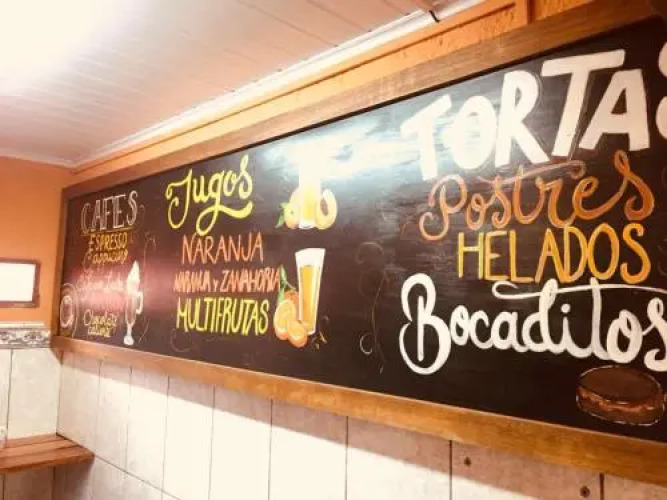 CAFES
ESPRESSO
CAPPUCINO
Jugos
NARANJA
NARANJA y ZANAHORIA
MULTIFRUTAS
TORTAS
Postres
HELADOS
Bocaditos